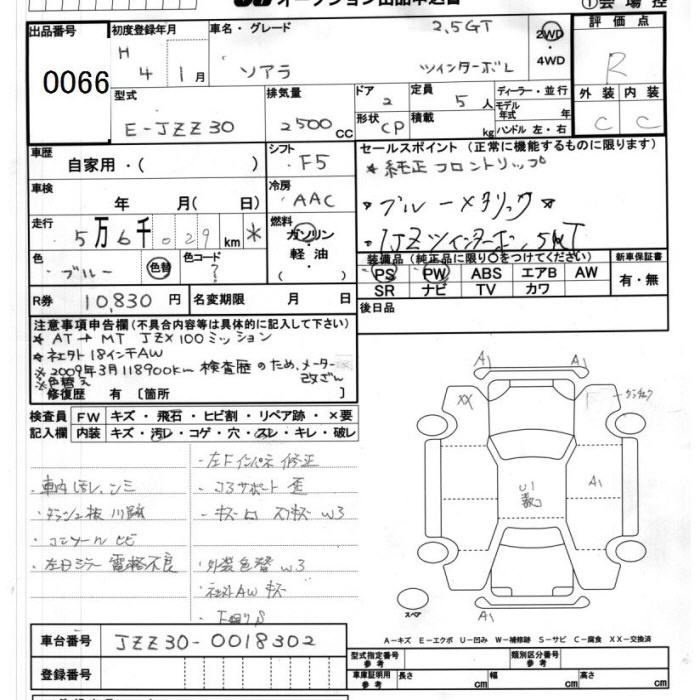 オークション出品申込書
①会場控
出品番号
0066
初度登録年月
H 4 1月
車名・グレード
2.5GT
ソアラ ツインターボL
2WD
・4WD
評価点
R
外装 内装
C C
型式
E-JZZ30
排気量
2500 CC
ドア 2
形状 CP
定員 5人
積載 kg
ディーラー・並行
モデル年式 年
ハンドル 左・右
車歴
自家用・( )
シフト
F5
車検
年 月( 日)
冷房
AAC
走行
5万6千029km *
燃料
ガソリン
・軽油・
( )
色
ブルー 色替
色コード
?
R券 10,830円
名変期限 月 日
セールスポイント(正常に機能するものに限ります)
* 純正フロントリップ
* ブルーメタリック *
* 1JZツインターボ 5MT
装備品(純正品に限り○をつけてください)
PS PW ABS エアB AW
SR ナビ TV カワ
新車保証書
有・無
後日品
注意事項申告欄(不具合内容等は具体的に記入して下さい)
* AT→MT JZX100ミッション
* 社外18インチAW
※2009年3月118900km 検査歴のため、メーター改ざん
※色替え
修復歴 有〔箇所 〕
検査員記入欄
FW キズ・飛石・ヒビ割・リペア跡・×要
内装 キズ・汚レ・コゲ・穴・スレ・キレ・破レ
・左Fインパネ 修正
・車内 汚レ、シミ
・コアサポート 歪
・ダッシュ板 川跡
・キズ 凹 スリキズ W3
・コンソール ヒビ
・左右ミラー 電格不良
・外装色替 W3
・社外AW キズ
・下廻りS
A1
XX
A1
U1
A1
スペア
A-キズ E-エクボ U-凹み W-補修跡 S-サビ C-腐食 XX-交換済
車台番号 JZZ30-0018302
登録番号
型式指定番号 参考
類別区分番号 参考
車庫証明用 参考
長さ cm 幅 cm 高さ cm